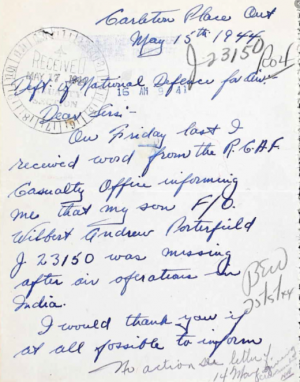 Carleton Place Ont
May 15th 1944
J 23150
RECEIVED
MAY 17 1944
Dept of National Defence for Air
15 AM 9 41
Dear Sirs:-
On Friday last I
received word from the R.C.A.F
Casualty Office informing
me that my son F/O.
Wilbert Andrew Porterfield
J 23150 was missing
after air operations in
India.
25/5/44
I would thank you if
at all possible to inform
No action see letter
14 May